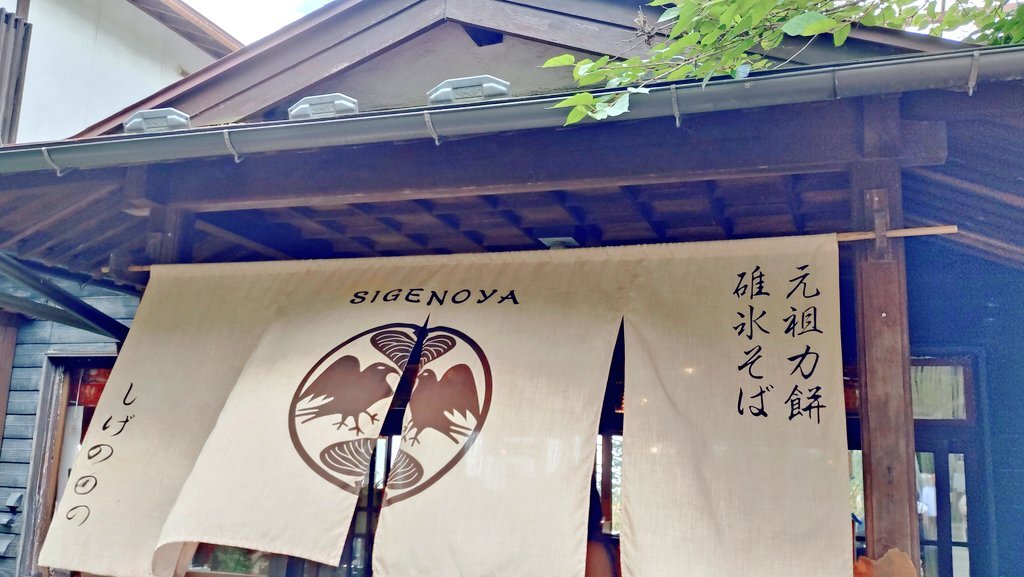 SIGENOYA
元祖力餅
碓氷そば
しげの田の